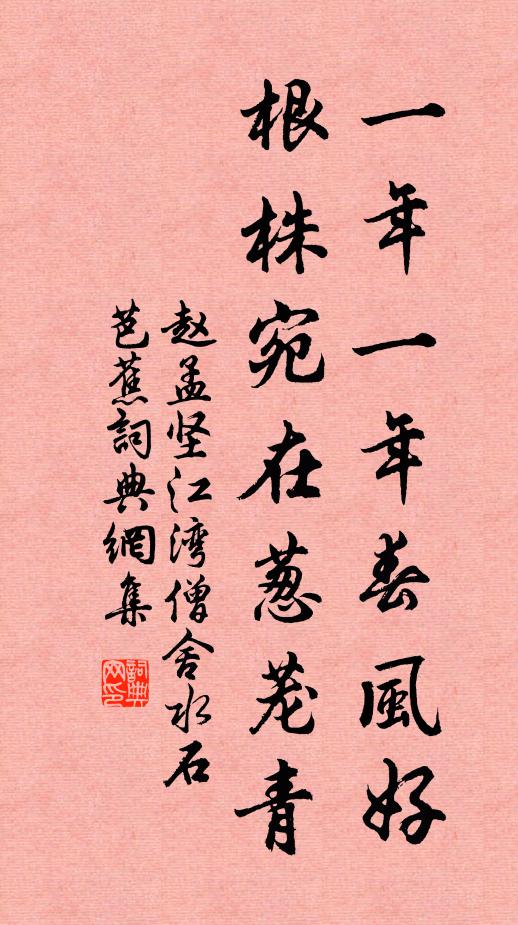 一年一年春風好
根株宛在葱茏青
赵孟坚江湾僧舍水石
芭蕉詞典網集
詞典网印